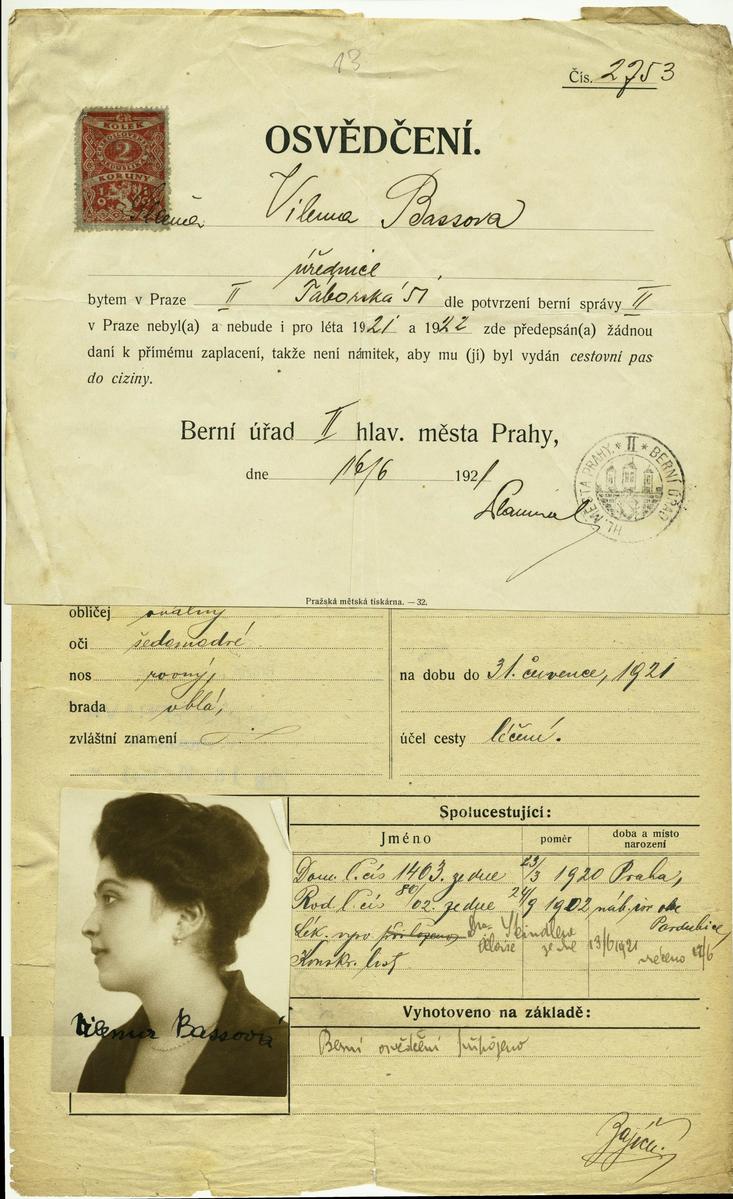 13
Čís. 2753
KOLEK
2
KORUNY
OSVĚDČENÍ.
Vilma Bassova
úřednice
bytem v Praze II Táborská 51 dle potvrzení berní správy II
v Praze nebyl(a) a nebude i pro léta 1921 a 1922 zde předepsán(a) žádnou
daní k přímému zaplacení, takže není námitek, aby mu (jí) byl vydán cestovní pas
do ciziny.
Berní úřad II hlav. města Prahy,
dne 16/6 1921
HL. MĚSTA PRAHY. * II * BERNÍ ÚŘAD
Pražská městská tiskárna. — 32.
obličej oválný
oči šedomodré
nos rovný,
brada oblá,
zvláštní znamení
na dobu do 31. července, 1921
účel cesty léčení.
Spolucestující:
Jméno poměr doba a místo narození
Dom. l. čís 1403. ze dne 23/3 1920 Praha,
Rod l. čís 80/02. ze dne 24/9 1902 náb.
Pardubice
Lék. ze dne 13/6 1921
Konskr. list
Vyhotoveno na základě:
Berní osvědčení připojeno
Vilma Bassová